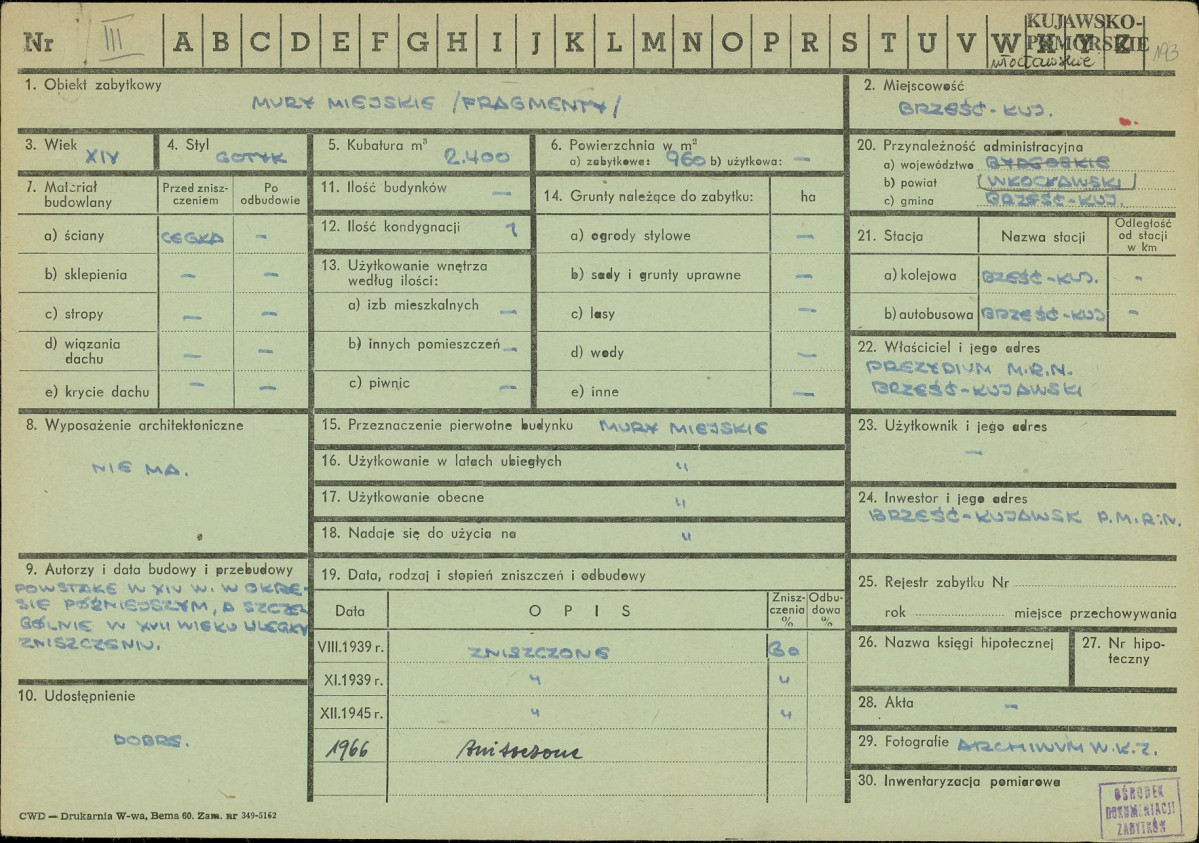 Nr III A B C D E F G H I J K L M N O P R S T U V W X Y Z
KUJAWSKO-
POMORSKIE
włocławskie
193
1. Obiekt zabytkowy
MURY MIEJSKIE /FRAGMENTY/
2. Miejscowość
BRZEŚĆ-KUJ.
3. Wiek
XIV
4. Styl
GOTYK
5. Kubatura m³
2.400
6. Powierzchnia w m²
a) zabytkowa: 960 b) użytkowa: —
20. Przynależność administracyjna
a) województwo BYDGOSKIE
b) powiat (WŁOCŁAWSKI)
c) gmina BRZEŚĆ-KUJ.
7. Materiał
budowlany
Przed znisz-
czeniem
Po
odbudowie
a) ściany CEGŁA –
b) sklepienia – –
c) stropy – –
d) wiązania
dachu – –
e) krycie dachu – –
11. Ilość budynków —
12. Ilość kondygnacji 1
13. Użytkowanie wnętrza
według ilości:
a) izb mieszkalnych —
b) innych pomieszczeń —
c) piwnic —
14. Grunty należące do zabytku: ha
a) ogrody stylowe —
b) sady i grunty uprawne —
c) lasy —
d) wody —
e) inne —
21. Stacja
Nazwa stacji
Odległość
od stacji
w km
a) kolejowa BZEŚĆ-KUJ. -
b) autobusowa BRZEŚĆ-KUJ -
22. Właściciel i jego adres
PREZYDIUM M.R.N.
BRZEŚĆ-KUJAWSKI
8. Wyposażenie architektoniczne
NIE MA.
15. Przeznaczenie pierwotne budynku MURY MIEJSKIE
16. Użytkowanie w latach ubiegłych "
17. Użytkowanie obecne "
18. Nadaje się do użycia na "
23. Użytkownik i jego adres
—
24. Inwestor i jego adres
BRZEŚĆ-KUJAWSK P.M.R.N.
9. Autorzy i data budowy i przebudowy
POWSTAŁE W XIV W. W OKRE-
SIE PÓŹNIEJSZYM, A SZCZE-
GÓLNIE W XVII WIEKU ULEGŁY
ZNISZCZENIU.
10. Udostępnienie
DOBRE.
19. Data, rodzaj i stopień zniszczeń i odbudowy
Data
OPIS
Znisz-
czenia
%
Odbu-
dowa
%
VIII.1939 r. ZNISZCZONE 80
XI.1939 r. " "
XII.1945 r. " "
1966 Zniszczone
25. Rejestr zabytku Nr
rok miejsce przechowywania
26. Nazwa księgi hipotecznej
27. Nr hipo-
teczny
28. Akta —
29. Fotografie ARCHIWUM W.K.Z.
30. Inwentaryzacja pomiarowa
OŚRODEK
DOKUMENTACJI
ZABYTKÓW
CWD — Drukarnia W-wa, Bema 60. Zam. nr 349-5162